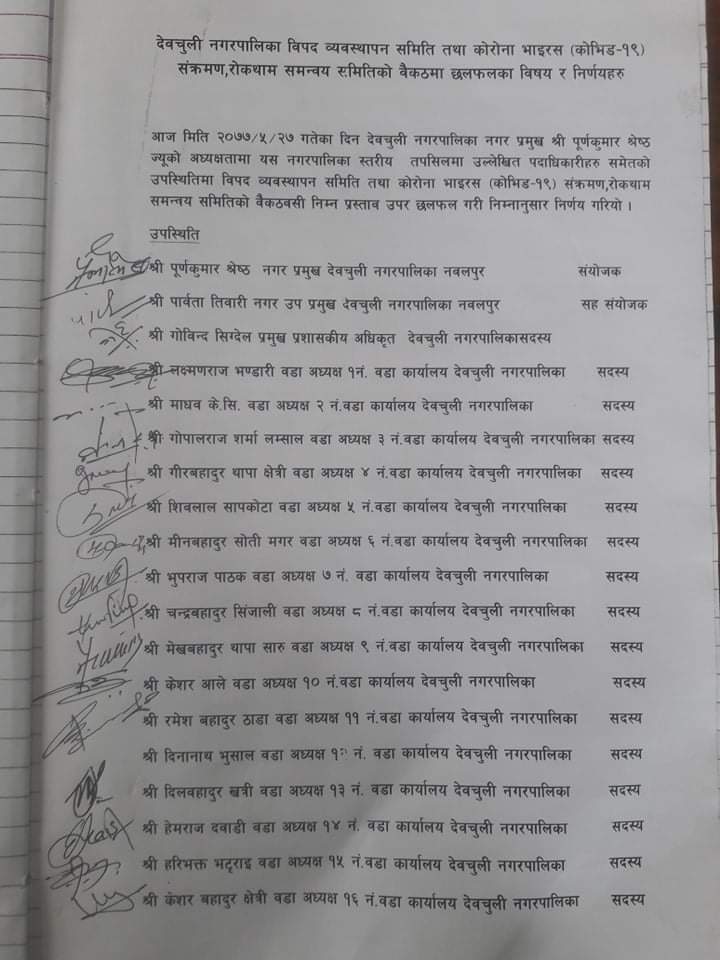 देवचुली नगरपालिका विपद व्यवस्थापन समिति तथा कोरोना भाइरस (कोभिड-१९)
संक्रमण,रोकथाम समन्वय समितिको वैकठमा छलफलका विषय र निर्णयहरु
आज मिति २०७७/५/२७ गतेका दिन देवचुली नगरपालिका नगर प्रमुख श्री पूर्णकुमार श्रेष्ठ
ज्यूको अध्यक्षतामा यस नगरपालिका स्तरीय तपसिलमा उल्लेखित पदाधिकारीहरु समेतको
उपस्थितिमा विपद व्यवस्थापन समिति तथा कोरोना भाइरस (कोभिड-१९) संक्रमण,रोकथाम
समन्वय समितिको वैकठवसी निम्न प्रस्ताव उपर छलफल गरी निम्नानुसार निर्णय गरियो ।
उपस्थिति
श्री पूर्णकुमार श्रेष्ठ नगर प्रमुख देवचुली नगरपालिका नवलपुर संयोजक
श्री पार्वता तिवारी नगर उप प्रमुख देवचुली नगरपालिका नवलपुर सह संयोजक
श्री गोविन्द सिग्देल प्रमुख प्रशासकीय अधिकृत देवचुली नगरपालिकासदस्य
श्री लक्ष्मणराज भण्डारी वडा अध्यक्ष १नं. वडा कार्यालय देवचुली नगरपालिका सदस्य
श्री माधव के.सि. वडा अध्यक्ष २ नं.वडा कार्यालय देवचुली नगरपालिका सदस्य
श्री गोपालराज शर्मा लम्साल वडा अध्यक्ष ३ नं.वडा कार्यालय देवचुली नगरपालिका सदस्य
श्री गीरबहादुर थापा क्षेत्री वडा अध्यक्ष ४ नं.वडा कार्यालय देवचुली नगरपालिका सदस्य
श्री शिवलाल सापकोटा वडा अध्यक्ष ५ नं.वडा कार्यालय देवचुली नगरपालिका सदस्य
श्री मीनबहादुर सोती मगर वडा अध्यक्ष ६ नं.वडा कार्यालय देवचुली नगरपालिका सदस्य
श्री भुपराज पाठक वडा अध्यक्ष ७ नं. वडा कार्यालय देवचुली नगरपालिका सदस्य
श्री चन्द्रबहादुर सिंजाली वडा अध्यक्ष ८ नं.वडा कार्यालय देवचुली नगरपालिका सदस्य
श्री मेखबहादुर थापा सारु वडा अध्यक्ष ९ नं.वडा कार्यालय देवचुली नगरपालिका सदस्य
श्री केशर आले वडा अध्यक्ष १० नं.वडा कार्यालय देवचुली नगरपालिका सदस्य
श्री रमेश बहादुर ठाडा वडा अध्यक्ष ११ नं.वडा कार्यालय देवचुली नगरपालिका सदस्य
श्री दिनानाथ भुसाल वडा अध्यक्ष १२ नं. वडा कार्यालय देवचुली नगरपालिका सदस्य
श्री दिलवहादुर खत्री वडा अध्यक्ष १३ नं.वडा कार्यालय देवचुली नगरपालिका सदस्य
श्री हेमराज दवाडी वडा अध्यक्ष १४ नं. वडा कार्यालय देवचुली नगरपालिका सदस्य
श्री हरिभक्त भट्राइ वडा अध्यक्ष १५ नं.वडा कार्यालय देवचुली नगरपालिका सदस्य
श्री केशर बहादुर क्षेत्री वडा अध्यक्ष १६ नं.वडा कार्यालय देवचुली नगरपालिका सदस्य